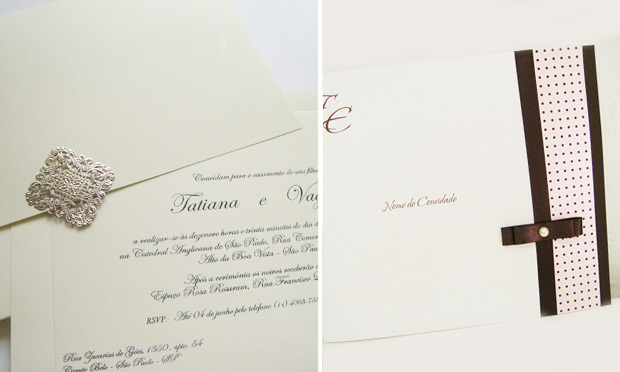 Convidam para o casamento de seus filho
Tatiana e Vag
a realizar-se às dezenove horas e trinta minutos do dia d
na Catedral Anglicana de São Paulo, Rua Comen
Alto da Boa Vista - São Pa
Após a cerimônia os noivos receberão
Espaço Rosa Rosarum, Rua Francisco L
RSVP: Até 04 de junho pelo telefone (11) 4063-75
Rua Zacarias de Góes, 1350, apto. 54
Campo Belo - São Paulo - SP
T
E
Nome do Convidado